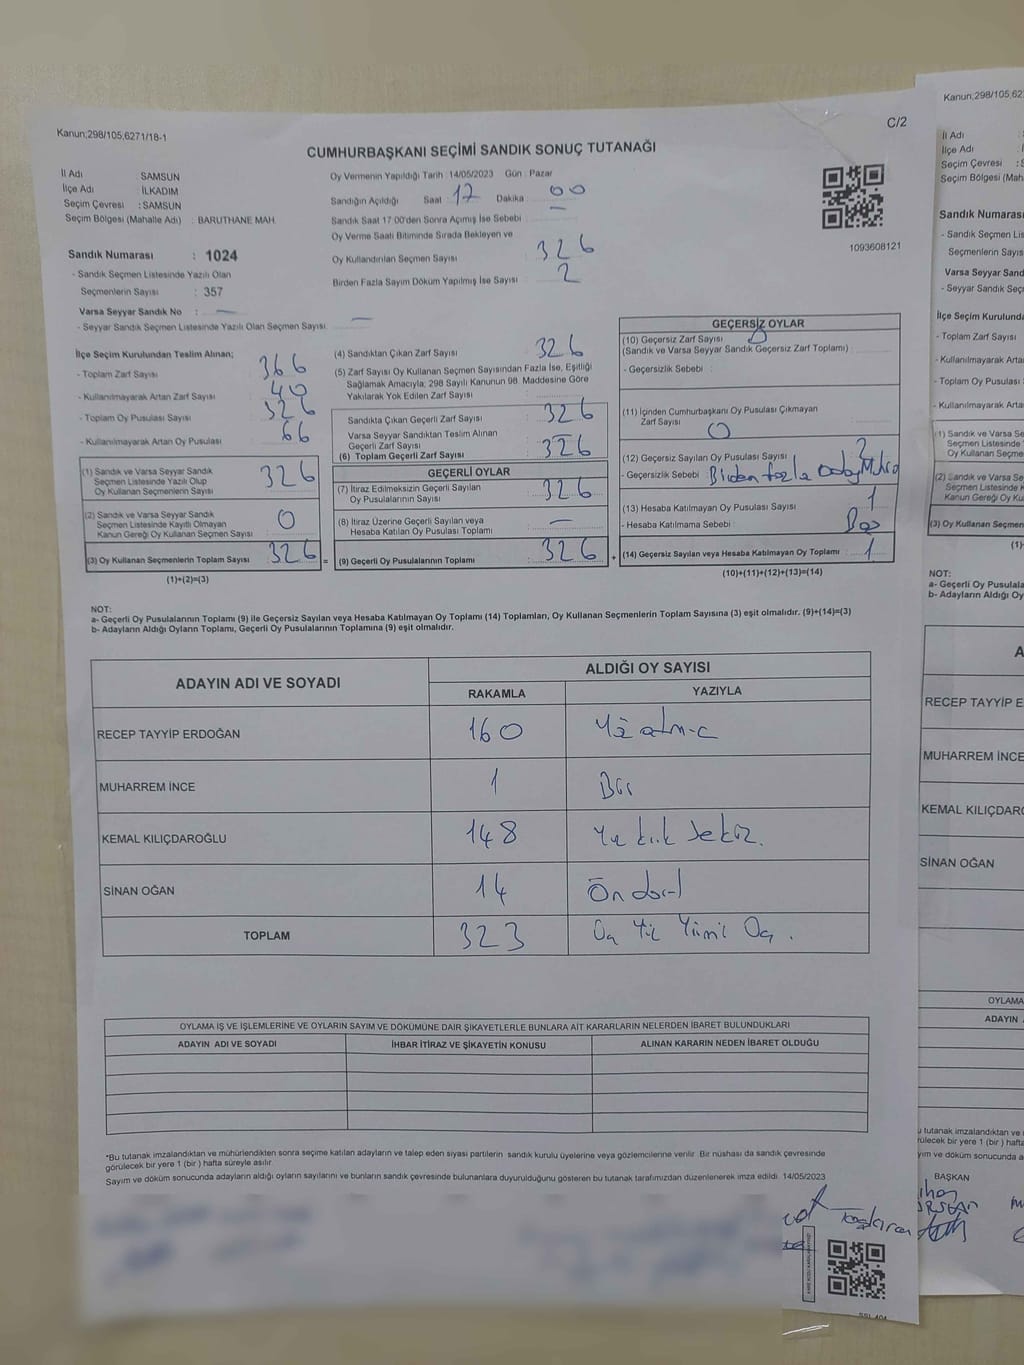 Kanun;298/105,6271/18-1
C/2
CUMHURBAŞKANI SEÇİMİ SANDIK SONUÇ TUTANAĞI
İl Adı SAMSUN
İlçe Adı İLKADIM
Seçim Çevresi : SAMSUN
Seçim Bölgesi (Mahalle Adı) : BARUTHANE MAH.
Oy Vermenin Yapıldığı Tarih :14/05/2023 Gün : Pazar
Sandığın Açıldığı Saat : 17 Dakika 00
Sandık Saat 17.00'den Sonra Açımış İse Sebebi —
Oy Verme Saati Bitiminde Sırada Bekleyen ve
Oy Kullandırılan Seçmen Sayısı : 326
Birden Fazla Sayım Döküm Yapılmış İse Sayısı : 2
1093608121
Sandık Numarası : 1024
- Sandık Seçmen Listesinde Yazılı Olan
Seçmenlerin Sayısı : 357
Varsa Seyyar Sandık No : —
- Seyyar Sandık Seçmen Listesinde Yazılı Olan Seçmen Sayısı —
İlçe Seçim Kurulundan Teslim Alınan;
- Toplam Zarf Sayısı : 366
- Kullanılmayarak Artan Zarf Sayısı : 40
- Toplam Oy Pusulası Sayısı : 326
- Kullanılmayarak Artan Oy Pusulası : 66
(1) Sandık ve Varsa Seyyar Sandık
Seçmen Listesinde Yazılı Olup
Oy Kullanan Seçmenlerin Sayısı 326
(2) Sandık ve Varsa Seyyar Sandık
Seçmen Listesinde Kayıtlı Olmayan
Kanun Gereği Oy Kullanan Seçmen Sayısı 0
(3) Oy Kullanan Seçmenlerin Toplam Sayısı 326
(1)+(2)=(3)
(4) Sandıktan Çıkan Zarf Sayısı : 326
(5) Zarf Sayısı Oy Kullanan Seçmen Sayısından Fazla İse, Eşitliği
Sağlamak Amacıyla; 298 Sayılı Kanunun 98. Maddesine Göre
Yakılarak Yok Edilen Zarf Sayısı
Sandıkta Çıkan Geçerli Zarf Sayısı : 326
Varsa Seyyar Sandıktan Teslim Alınan
Geçerli Zarf Sayısı —
(6) Toplam Geçerli Zarf Sayısı : 326
GEÇERLİ OYLAR
(7) İtiraz Edilmeksizin Geçerli Sayılan
Oy Pusulalarının Sayısı : 326
(8) İtiraz Üzerine Geçerli Sayılan veya
Hesaba Katılan Oy Pusulası Toplamı —
(9) Geçerli Oy Pusulalarının Toplamı : 326
GEÇERSİZ OYLAR
(10) Geçersiz Zarf Sayısı 0
(Sandık ve Varsa Seyyar Sandık Geçersiz Zarf Toplamı) :
- Geçersizlik Sebebi :
(11) İçinden Cumhurbaşkanı Oy Pusulası Çıkmayan
Zarf Sayısı : 0
(12) Geçersiz Sayılan Oy Pusulası Sayısı :
- Geçersizlik Sebebi : Birden fazla
(13) Hesaba Katılmayan Oy Pusulası Sayısı : 1
- Hesaba Katılmama Sebebi : Boş
(14) Geçersiz Sayılan veya Hesaba Katılmayan Oy Toplamı : 1
(10)+(11)+(12)+(13)=(14)
NOT:
a- Geçerli Oy Pusulalarının Toplamı (9) ile Geçersiz Sayılan veya Hesaba Katılmayan Oy Toplamı (14) Toplamları, Oy Kullanan Seçmenlerin Toplam Sayısına (3) eşit olmalıdır. (9)+(14)=(3)
b- Adayların Aldığı Oyların Toplamı, Geçerli Oy Pusulalarının Toplamına (9) eşit olmalıdır.
ADAYIN ADI VE SOYADI ALDIĞI OY SAYISI
RAKAMLA YAZIYLA
RECEP TAYYİP ERDOĞAN 160
MUHARREM İNCE 1 Bir
KEMAL KILIÇDAROĞLU 148 sekiz.
SİNAN OĞAN 14
TOPLAM 323 Üç Yüz Yirmi Üç.
OYLAMA İŞ VE İŞLEMLERİNE VE OYLARIN SAYIM VE DÖKÜMÜNE DAİR ŞİKAYETLERLE BUNLARA AİT KARARLARIN NELERDEN İBARET BULUNDUKLARI
ADAYIN ADI VE SOYADI İHBAR İTİRAZ VE ŞİKAYETİN KONUSU ALINAN KARARIN NEDEN İBARET OLDUĞU
*Bu tutanak imzalandıktan ve mühürlendikten sonra seçime katılan adayların ve talep eden siyasi partilerin sandık kurulu üyelerine veya gözlemcilerine verilir. Bir nüshası da sandık çevresinde
görülecek bir yere 1 (bir ) hafta süreyle asılır.
Sayım ve döküm sonucunda adayların aldığı oyların sayılarını ve bunların sandık çevresinde bulunanlara duyurulduğunu gösteren bu tutanak tarafımızdan düzenlenerek imza edildi. 14/05/2023
Kanun;298/105,62
İl Adı
İlçe Adı
Seçim Çevresi
Seçim Bölgesi (Mah
Sandık Numarası
- Sandık Seçmen Lis
Seçmenlerin Sayıs
Varsa Seyyar Sandık
- Seyyar Sandık Seç
İlçe Seçim Kurulunda
- Toplam Zarf Sayısı
- Kullanılmayarak Arta
- Toplam Oy Pusulası
- Kullanılmayarak Arta
(1) Sandık ve Varsa Se
Seçmen Listesinde Y
Oy Kullanan Seçmen
(3) Oy Kullanan Seçmen
(1)
NOT:
a- Geçerli Oy Pusulala
b- Adayların Aldığı Oy
A
RECEP TAYYİP E
MUHARREM İNCE
KEMAL KILIÇDARO
SİNAN OĞAN
OYLAMA
ADAYIN
u tutanak imzalandıktan ve
rülecek bir yere 1 (bir ) hafta
yım ve döküm sonucunda a
BAŞKAN